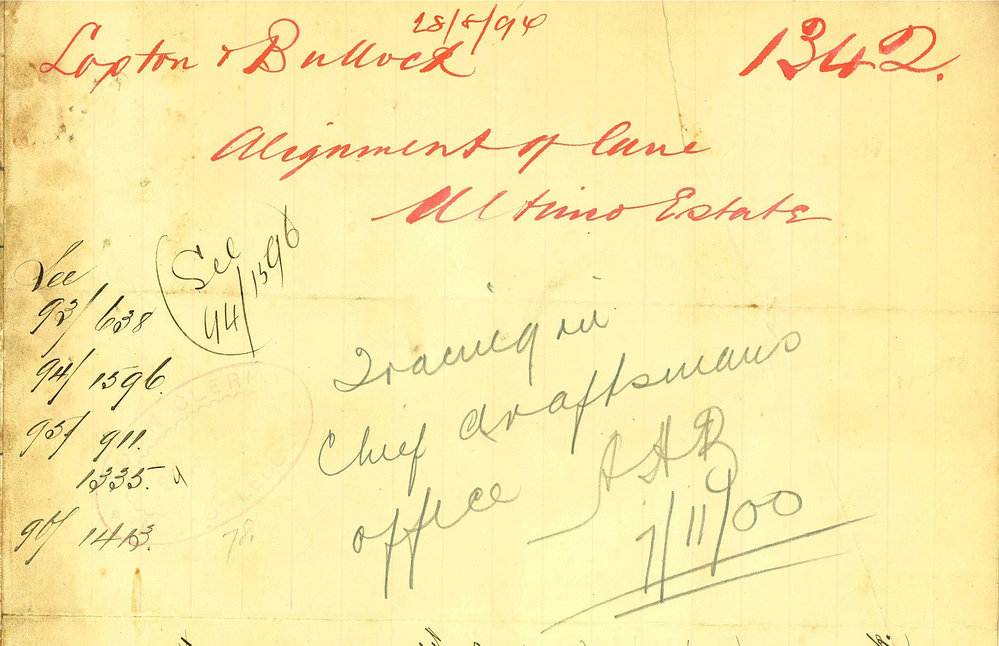 28/8/94
Loxton & Bullock
1342.
Alignment of lane
Ultimo Estate
See
94/1596
See
93/638
94/1596.
95/ 911.
1335.
1413.
78.
Tracing in
Chief draftsmans
office
7/11/00
CLERK